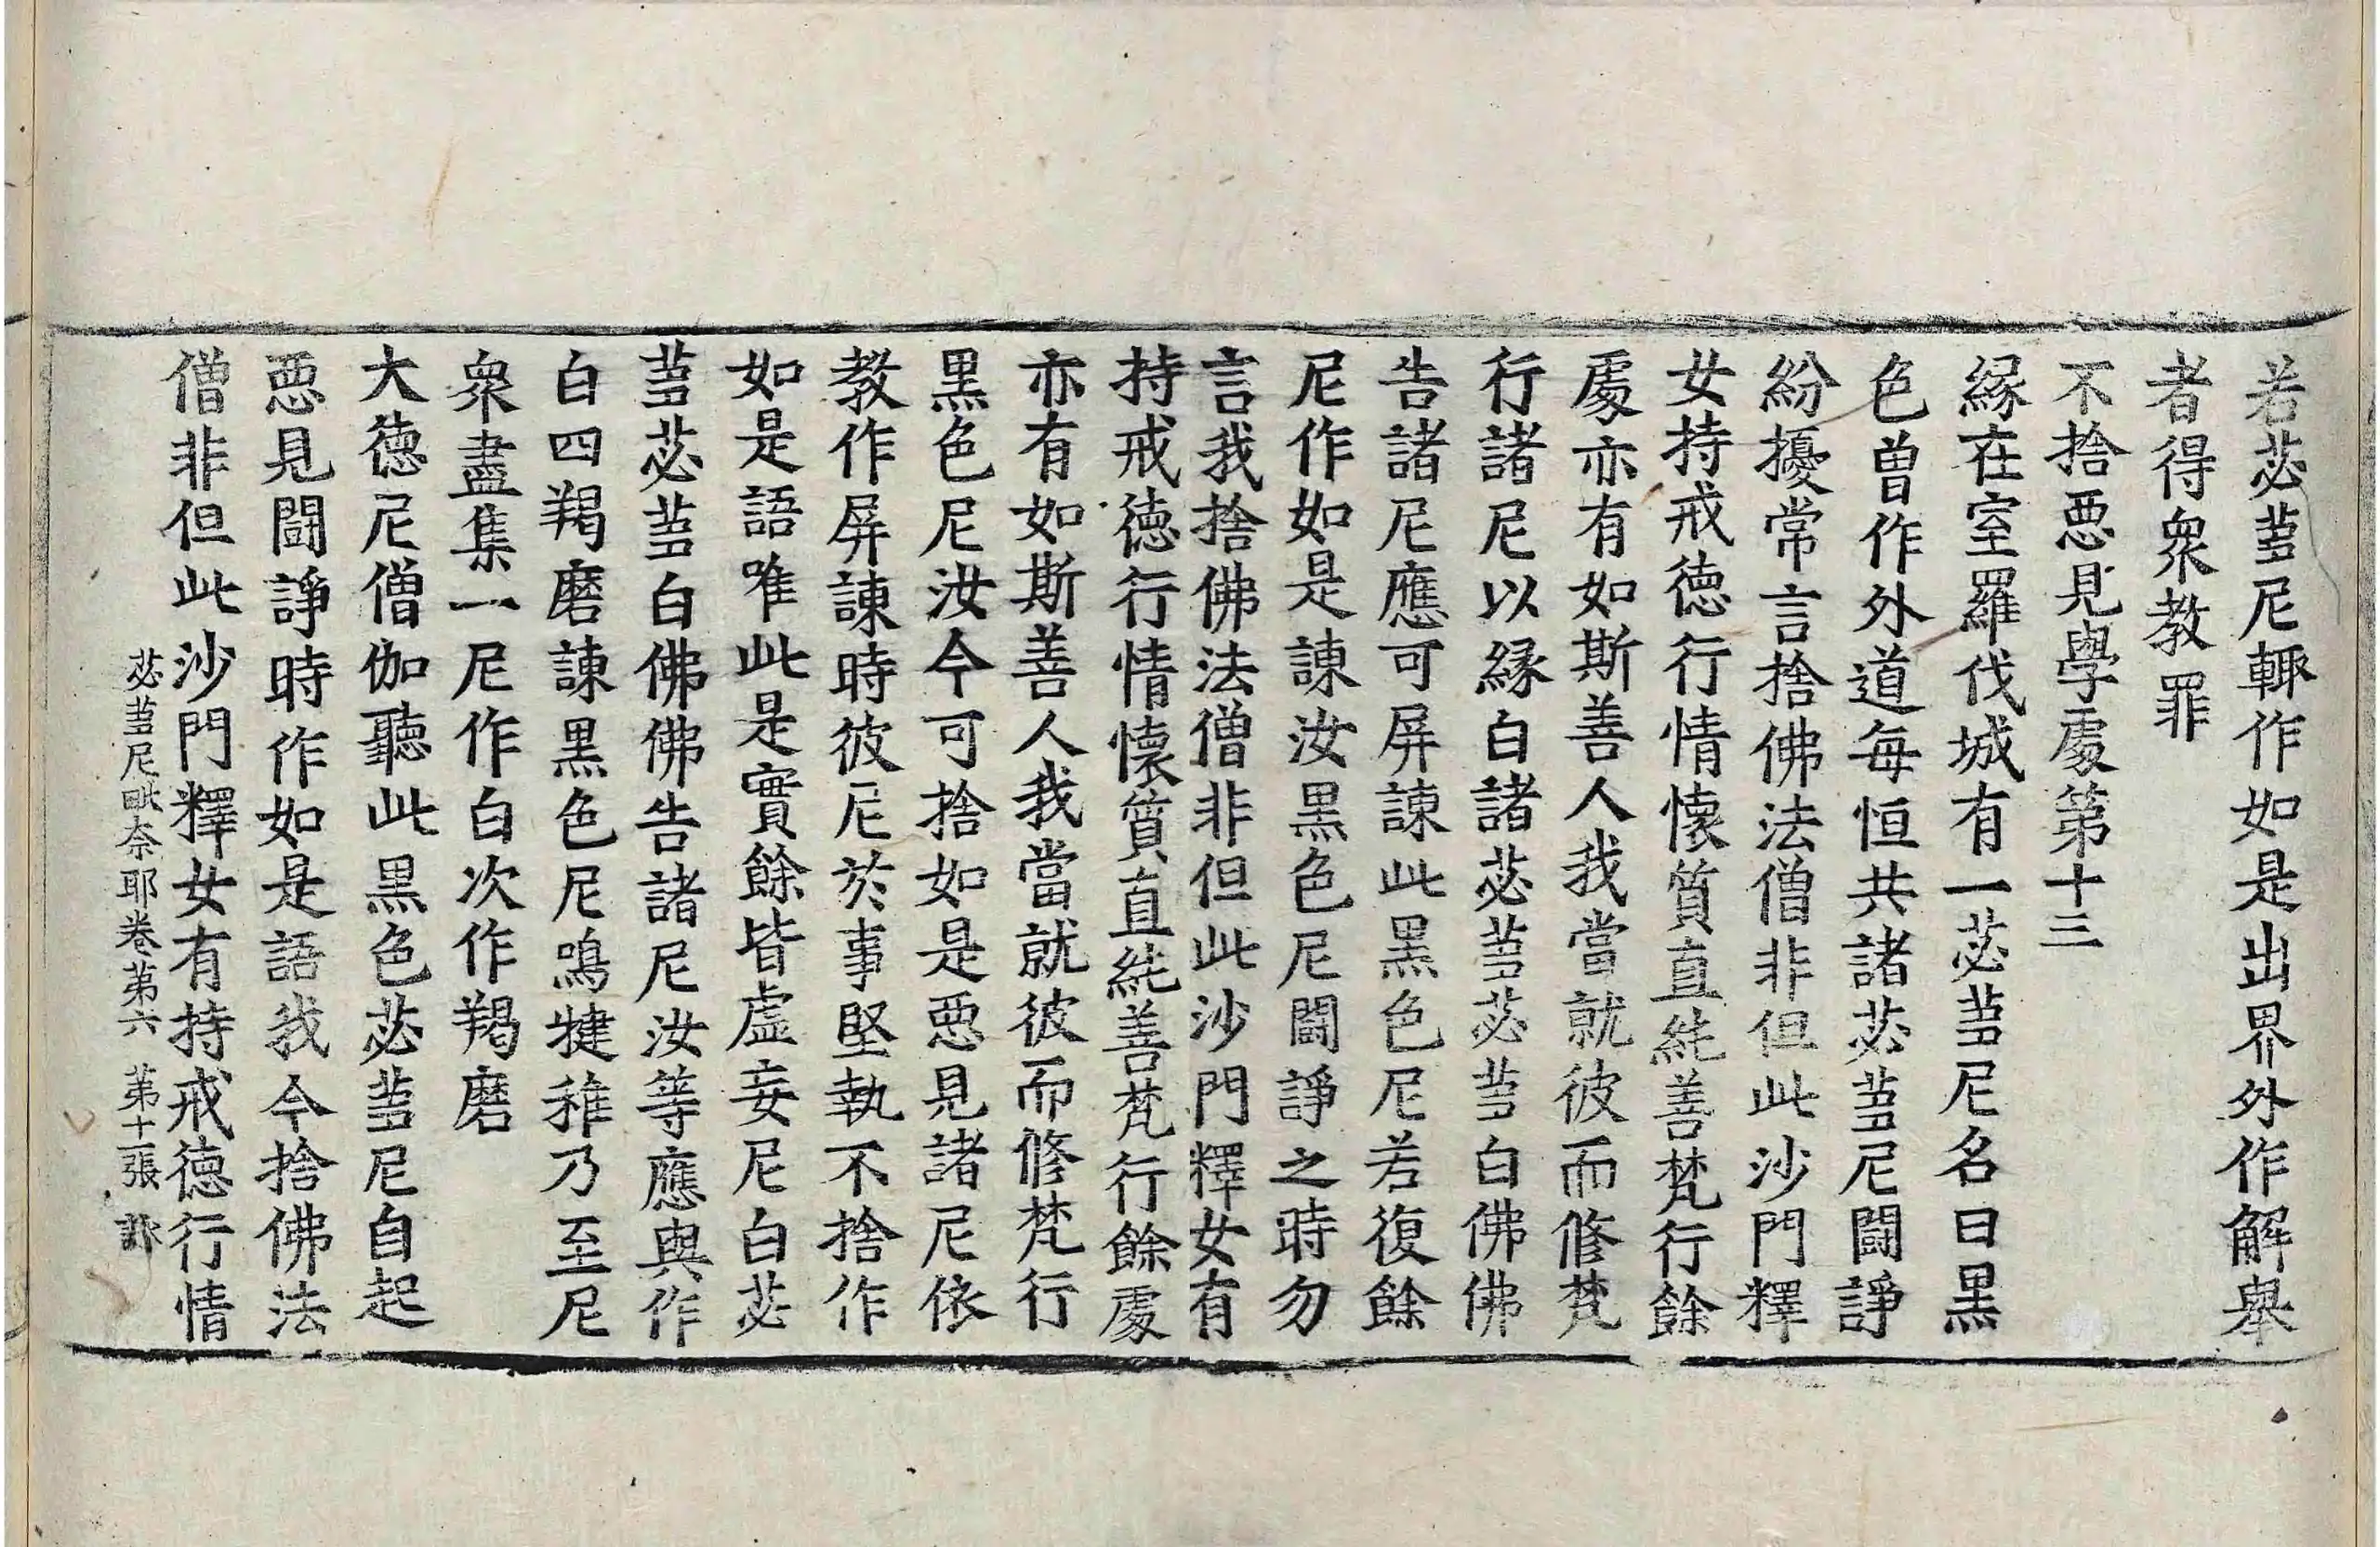 若苾蒭尼輙作如是出界外作解舉
者得衆教罪
不捨惡見學處第十三
緣在室羅伐城有一苾蒭尼名曰黑
色曾作外道每恒共諸苾蒭尼鬪諍
紛擾常言捨佛法僧非但此沙門釋
女持戒德行情懷質直純善梵行餘
處亦有如斯善人我當就彼而修梵
行諸尼以緣白諸苾蒭苾蒭白佛佛
告諸尼應可屏諫此黑色尼若復餘
尼作如是諫汝黑色尼鬪諍之時勿
言我捨佛法僧非但此沙門釋女有
持戒德行情懷質直純善梵行餘處
亦有如斯善人我當就彼而修梵行
黑色尼汝今可捨如是惡見諸尼依
教作屏諫時彼尼於事堅執不捨作
如是語唯此是實餘皆虛妄尼白苾
蒭苾蒭白佛佛告諸尼汝等應與作
白四羯磨諫黑色尼鳴揵稚乃至尼
衆盡集一尼作白次作羯磨
大德尼僧伽聽此黑色苾蒭尼自起
惡見鬪諍時作如是語我今捨佛法
僧非但此沙門釋女有持戒德行情
苾蒭尼毗奈耶卷第六 第十一張